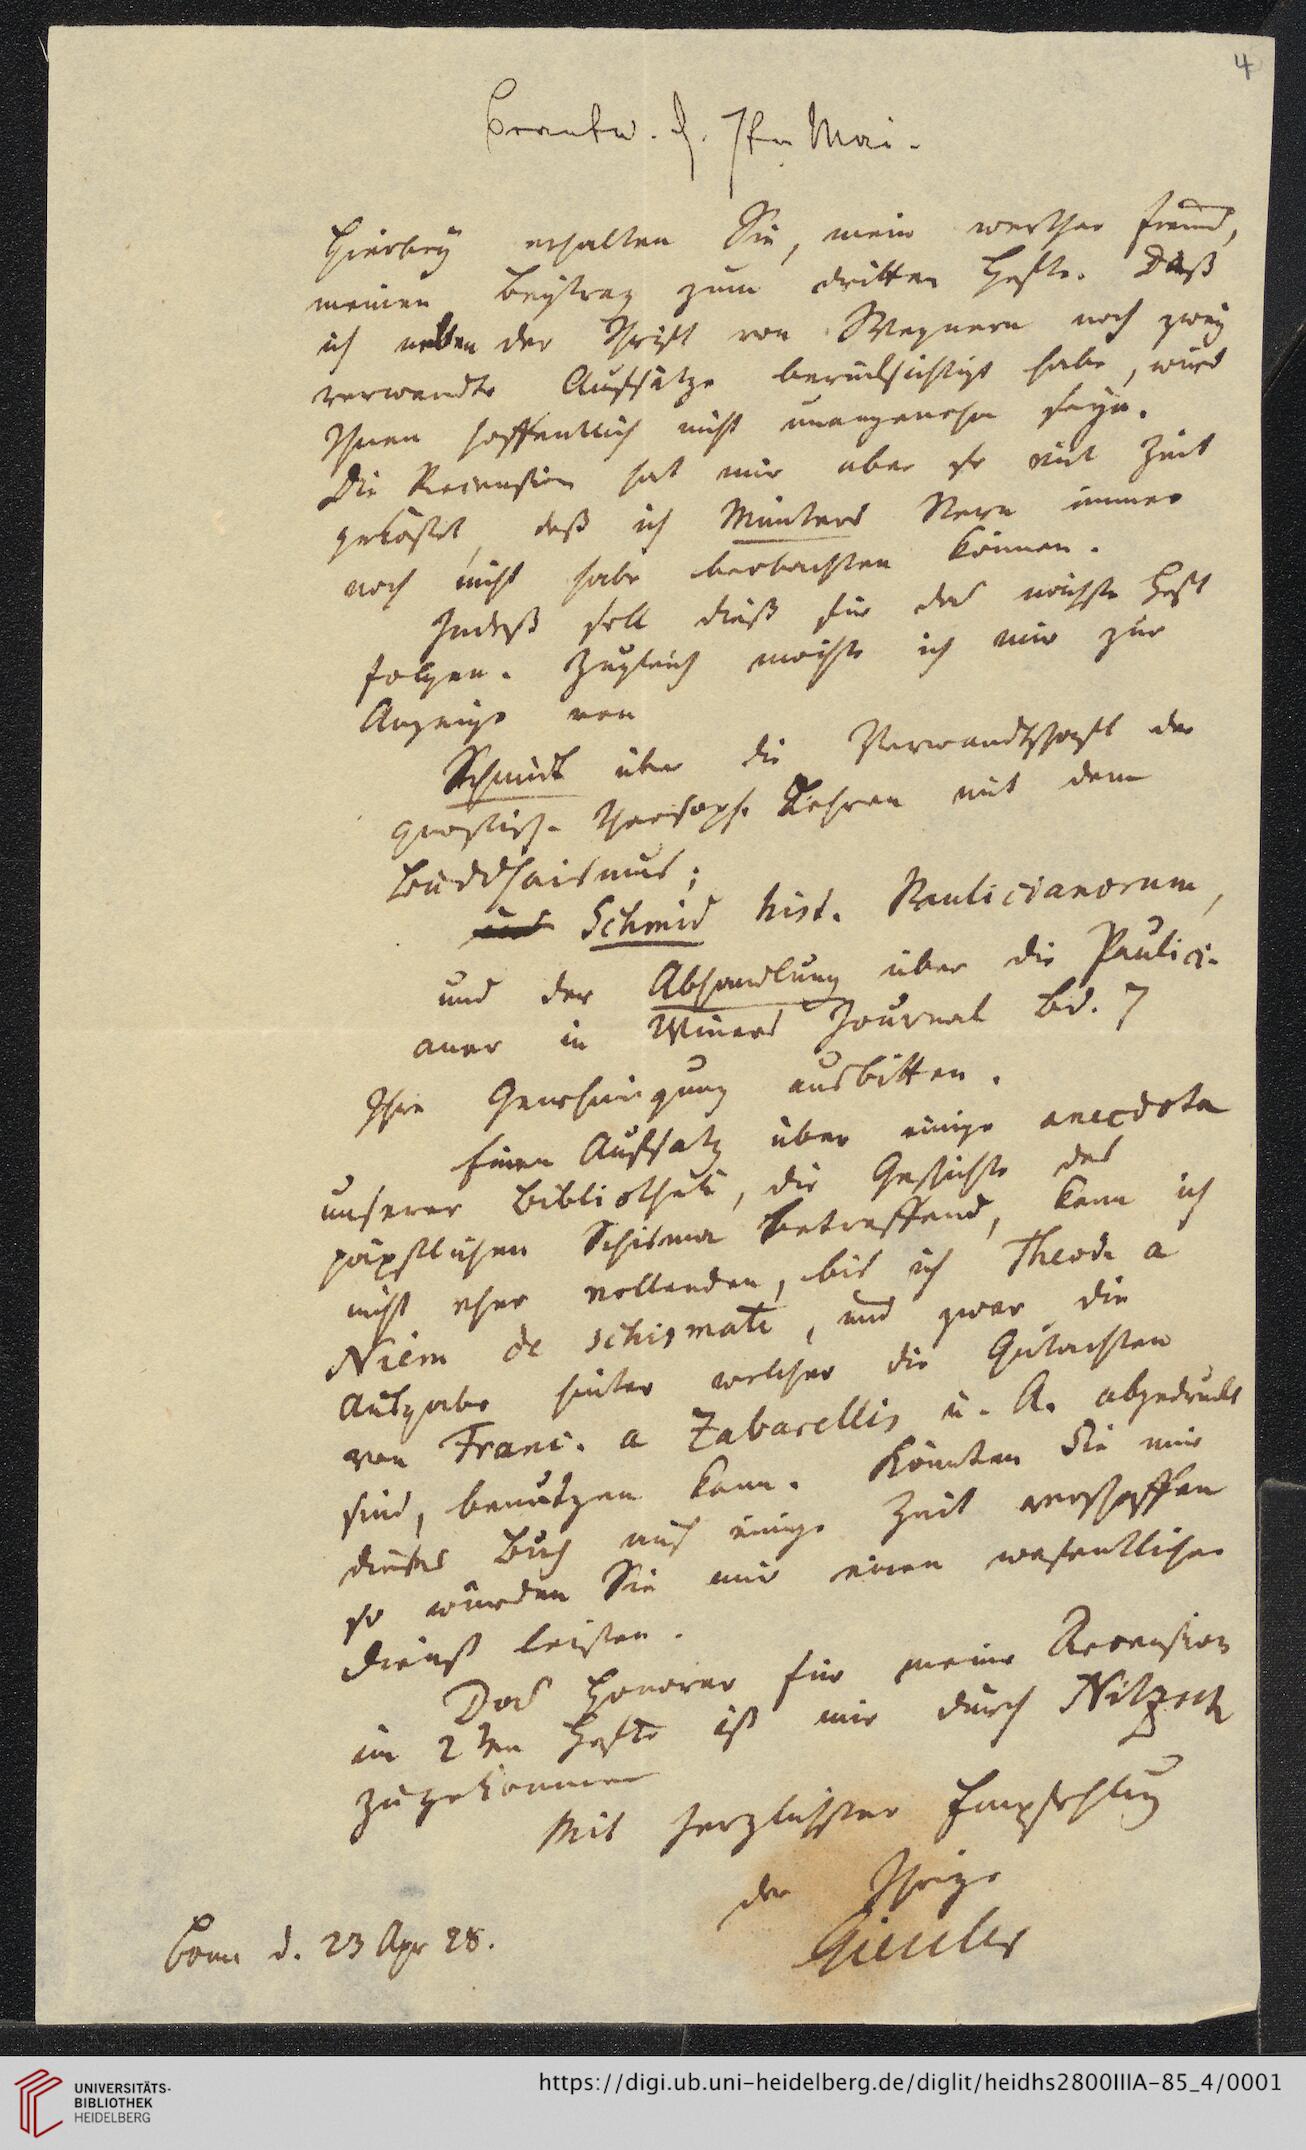 4
Beantw. d. 7ten Mai.
Hierbey erhalten Sie, mein werther Freund,
meinen Beytrag zum dritten Hefte. Daß
ich neben der Schrift von Wegnern noch zwey
verwandte Aufsätze berücksichtigt habe, wird
Ihnen hoffentlich nicht unangenehm seyn.
Die Recension hat mir aber so viel Zeit
gekostet, daß ich Münters Stern immer
noch nicht habe beobachten können.
Indeß soll dieß für das nächste Heft
folgen. Zugleich möchte ich mir zur
Anzeige von
Schmidt über die Verwandtschaft der
gnostisch-theosoph. Lehren mit dem
Buddhaismus;
Schmid hist. Paulicianorum,
und der Abhandlung über die Paulici-
aner in Winers Journal Bd. 7
Ihre Genehmigung ausbitten.
Einen Aufsatz über einige anecdota
unserer Bibliothek, die Geschichte des
päpstlichen Schisma betreffend, kann ich
nicht eher vollenden, bis ich Theod. a
Niem de schismate, und zwar die
Ausgabe hinter welcher die Gutachten
von Franc. a Zabarellis u. A. abgedruckt
sind, benutzen kann. Könnten Sie mir
dieses Buch auf einige Zeit verschaffen
so würden Sie mir einen wesentlichen
Dienst leisten.
Das Honorar für meine Recension
im 2ten Hefte ist mir durch Nitzsch
zugekommen
Mit herzlichster Empfehlung
der Ihrige
Gieseler
Bonn d. 23 Apr 28.
UNIVERSITÄTS-
BIBLIOTHEK
HEIDELBERG
https://digi.ub.uni-heidelberg.de/diglit/heidhs2800IIIA-85_4/0001